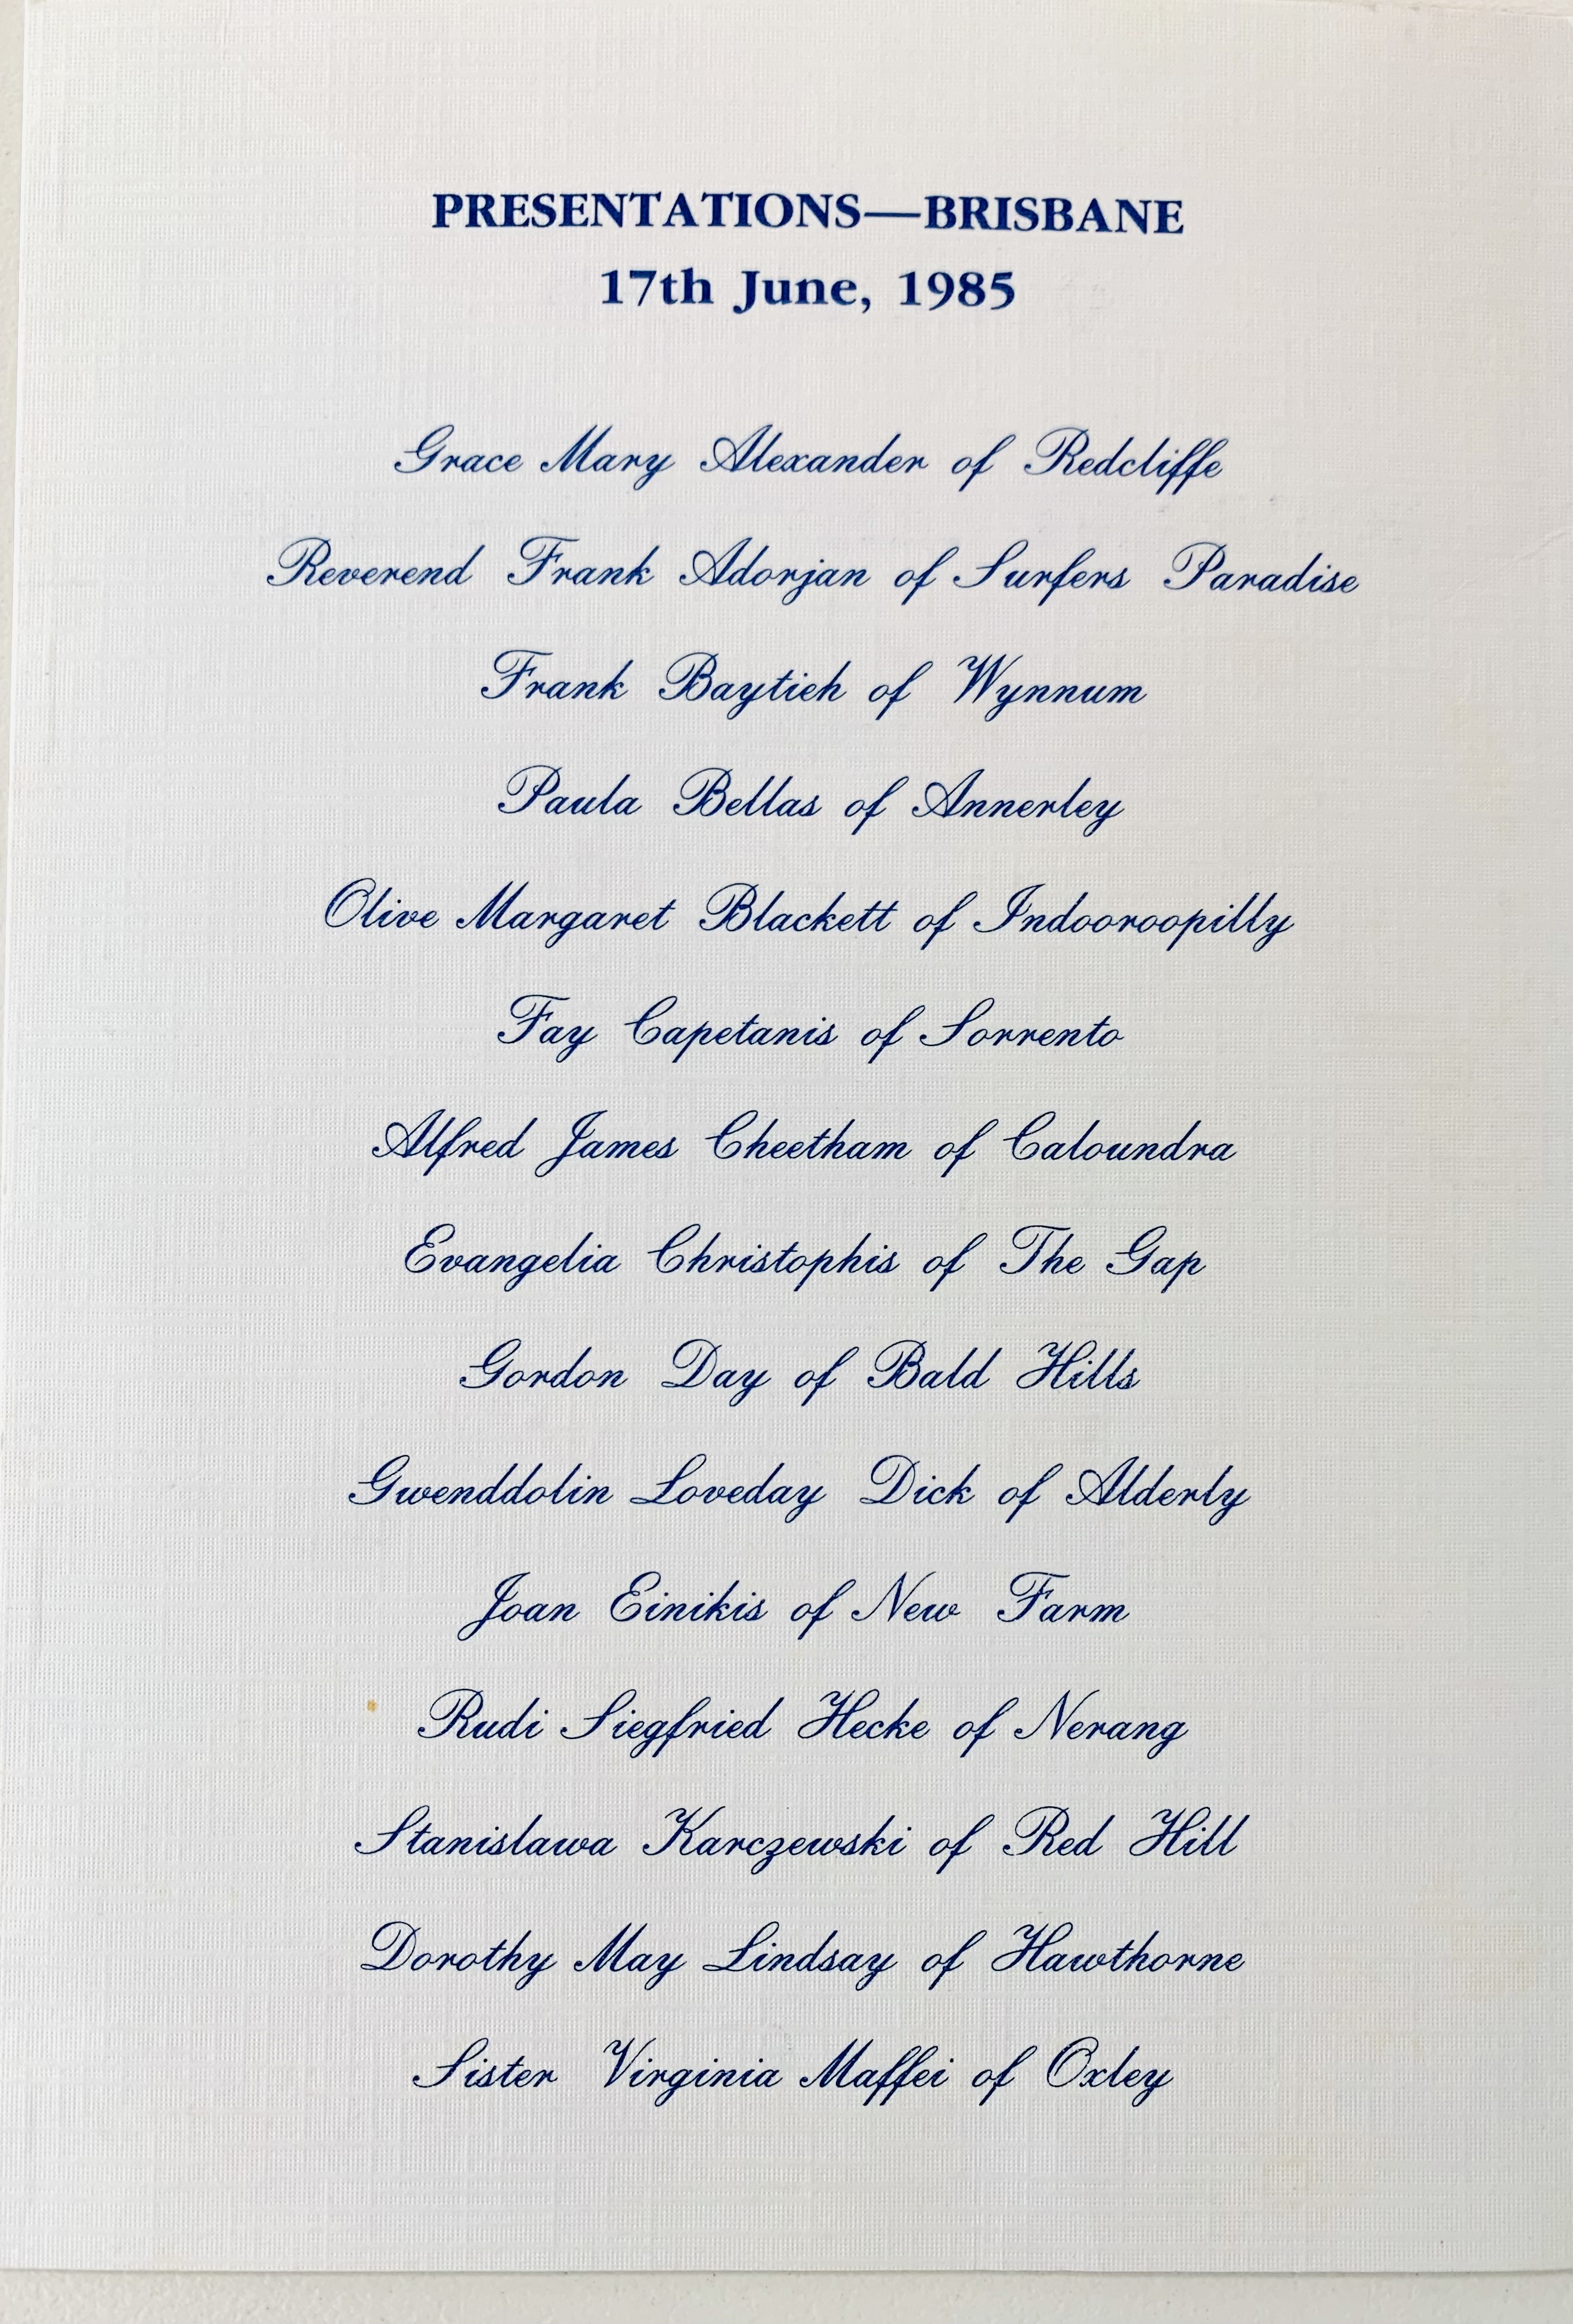 PRESENTATIONS—BRISBANE
17th June, 1985
Grace Mary Alexander of Redcliffe
Reverend Frank Adorjan of Surfers Paradise
Frank Baytieh of Wynnum
Paula Bellas of Annerley
Olive Margaret Blackett of Indooroopilly
Fay Capetanis of Sorrento
Alfred James Cheetham of Caloundra
Evangelia Christophis of The Gap
Gordon Day of Bald Hills
Gwenddolin Loveday Dick of Alderly
Joan Einikis of New Farm
Rudi Siegfried Hecke of Nerang
Stanislawa Karczewski of Red Hill
Dorothy May Lindsay of Hawthorne
Sister Virginia Maffei of Oxley